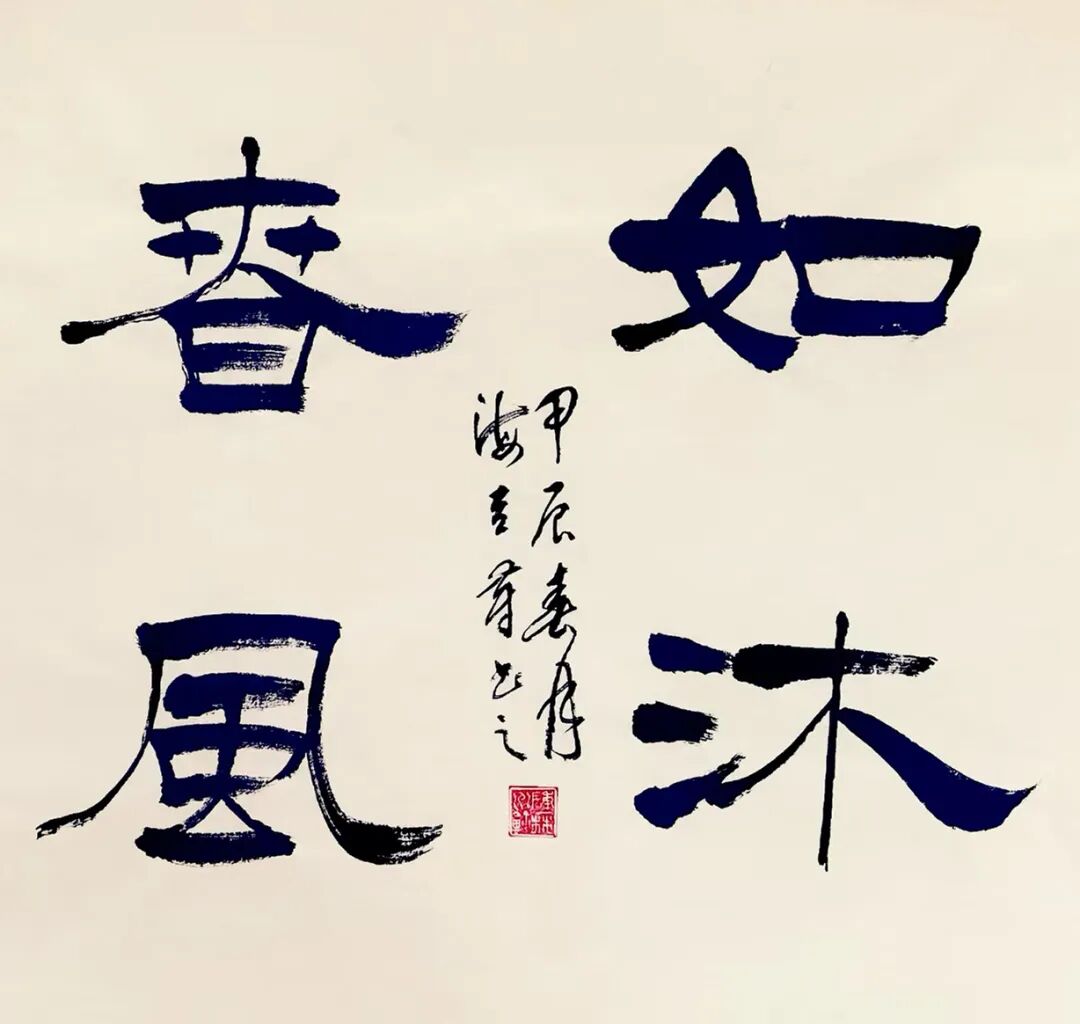 如沐
春風
甲辰春月
海音 書之